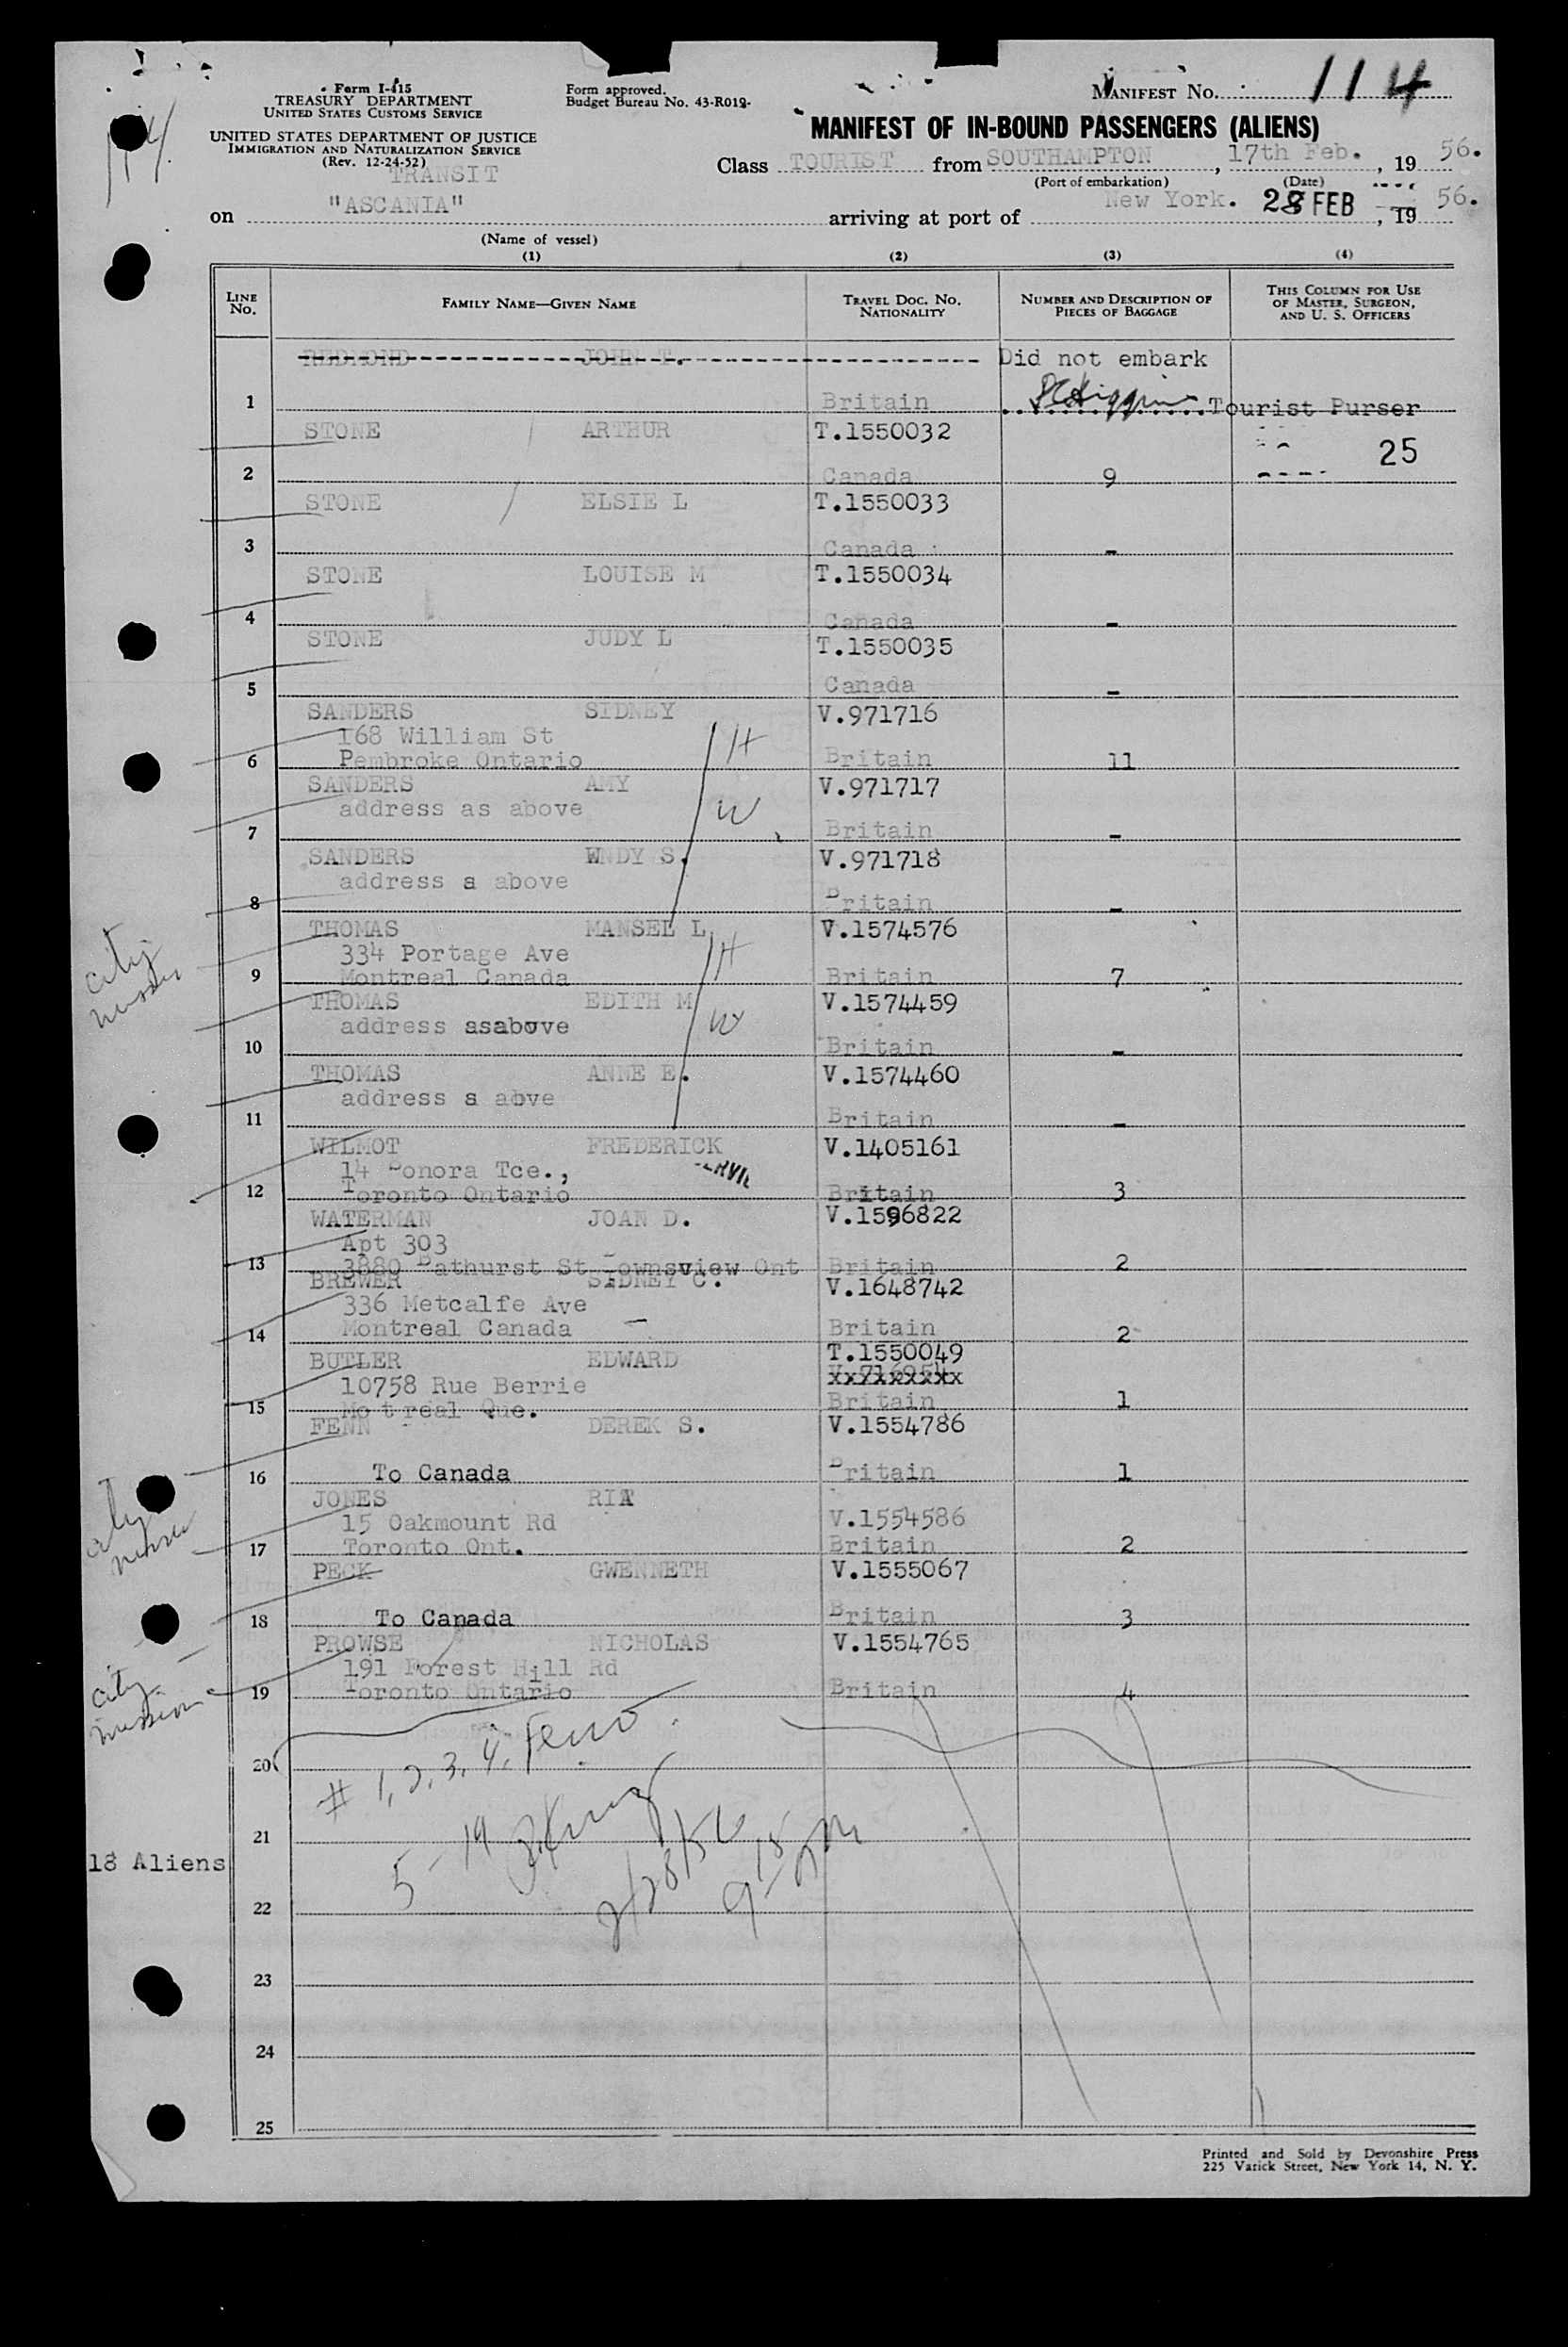 Form I-415
TREASURY DEPARTMENT
UNITED STATES CUSTOMS SERVICE
UNITED STATES DEPARTMENT OF JUSTICE
IMMIGRATION AND NATURALIZATION SERVICE
(Rev. 12-24-52)
TRANSIT
Form approved.
Budget Bureau No. 43-R019-
MANIFEST No. 114
114
MANIFEST OF IN-BOUND PASSENGERS (ALIENS)
Class TOURIST from SOUTHAMPTON, 17th Feb., 19 56.
(Port of embarkation) (Date)
on "ASCANIA" arriving at port of New York. 28 FEB, 19 56.
(Name of vessel)
(1) (2) (3) (4)
LINE No. FAMILY NAME—GIVEN NAME TRAVEL DOC. NO. NATIONALITY NUMBER AND DESCRIPTION OF PIECES OF BAGGAGE THIS COLUMN FOR USE OF MASTER, SURGEON, AND U. S. OFFICERS
REDMOND JOHN T. Did not embark
1 Britain Tourist Purser
STONE ARTHUR T.1550032
25
2 Canada 9
STONE ELSIE L T.1550033
3 Canada -
STONE LOUISE M T.1550034
4 Canada -
STONE JUDY L T.1550035
5 Canada -
SANDERS SIDNEY V.971716
168 William St H
6 Pembroke Ontario Britain 11
SANDERS AMY V.971717
address as above W
7 Britain -
SANDERS WNDY S. V.971718
address a above
8 Britain -
THOMAS MANSEL L V.1574576
334 Portage Ave H
9 Montreal Canada Britain 7
THOMAS EDITH M V.1574459
address asabove W
10 Britain -
THOMAS ANNE E. V.1574460
address a abve
11 Britain -
WILMOT FREDERICK V.1405161
14 Sonora Tce.,
12 Toronto Ontario Britain 3
WATERMAN JOAN D. V.1596822
Apt 303
13 3880 Bathurst St Townsview Ont Britain 2
BREWER SIDNEY C. V.1648742
336 Metcalfe Ave
14 Montreal Canada Britain 2
BUTLER EDWARD T.1550049
10758 Rue Berrie xxxxxxxxx
15 Mo t real Que. Britain 1
FENN DEREK S. V.1554786
16 To Canada Britain 1
JONES RIA
15 Oakmount Rd V.1554586
17 Toronto Ont. Britain 2
PECK GWENNETH V.1555067
18 To Canada Britain 3
PROWSE NICHOLAS V.1554765
191 Forest Hill Rd
19 Toronto Ontario Britain 4
city
city
city
mission
20
# 1, 2, 3, 4.
21
5 - 19
18 Aliens
2/28/56
22
23
24
25
Printed and Sold by Devonshire Press
225 Varick Street, New York 14, N. Y.